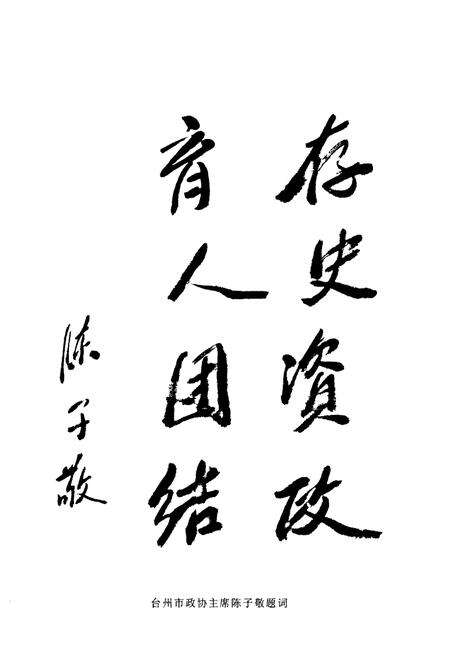 存史资政
育人团结
陈子敬
台州市政协主席陈子敬题词